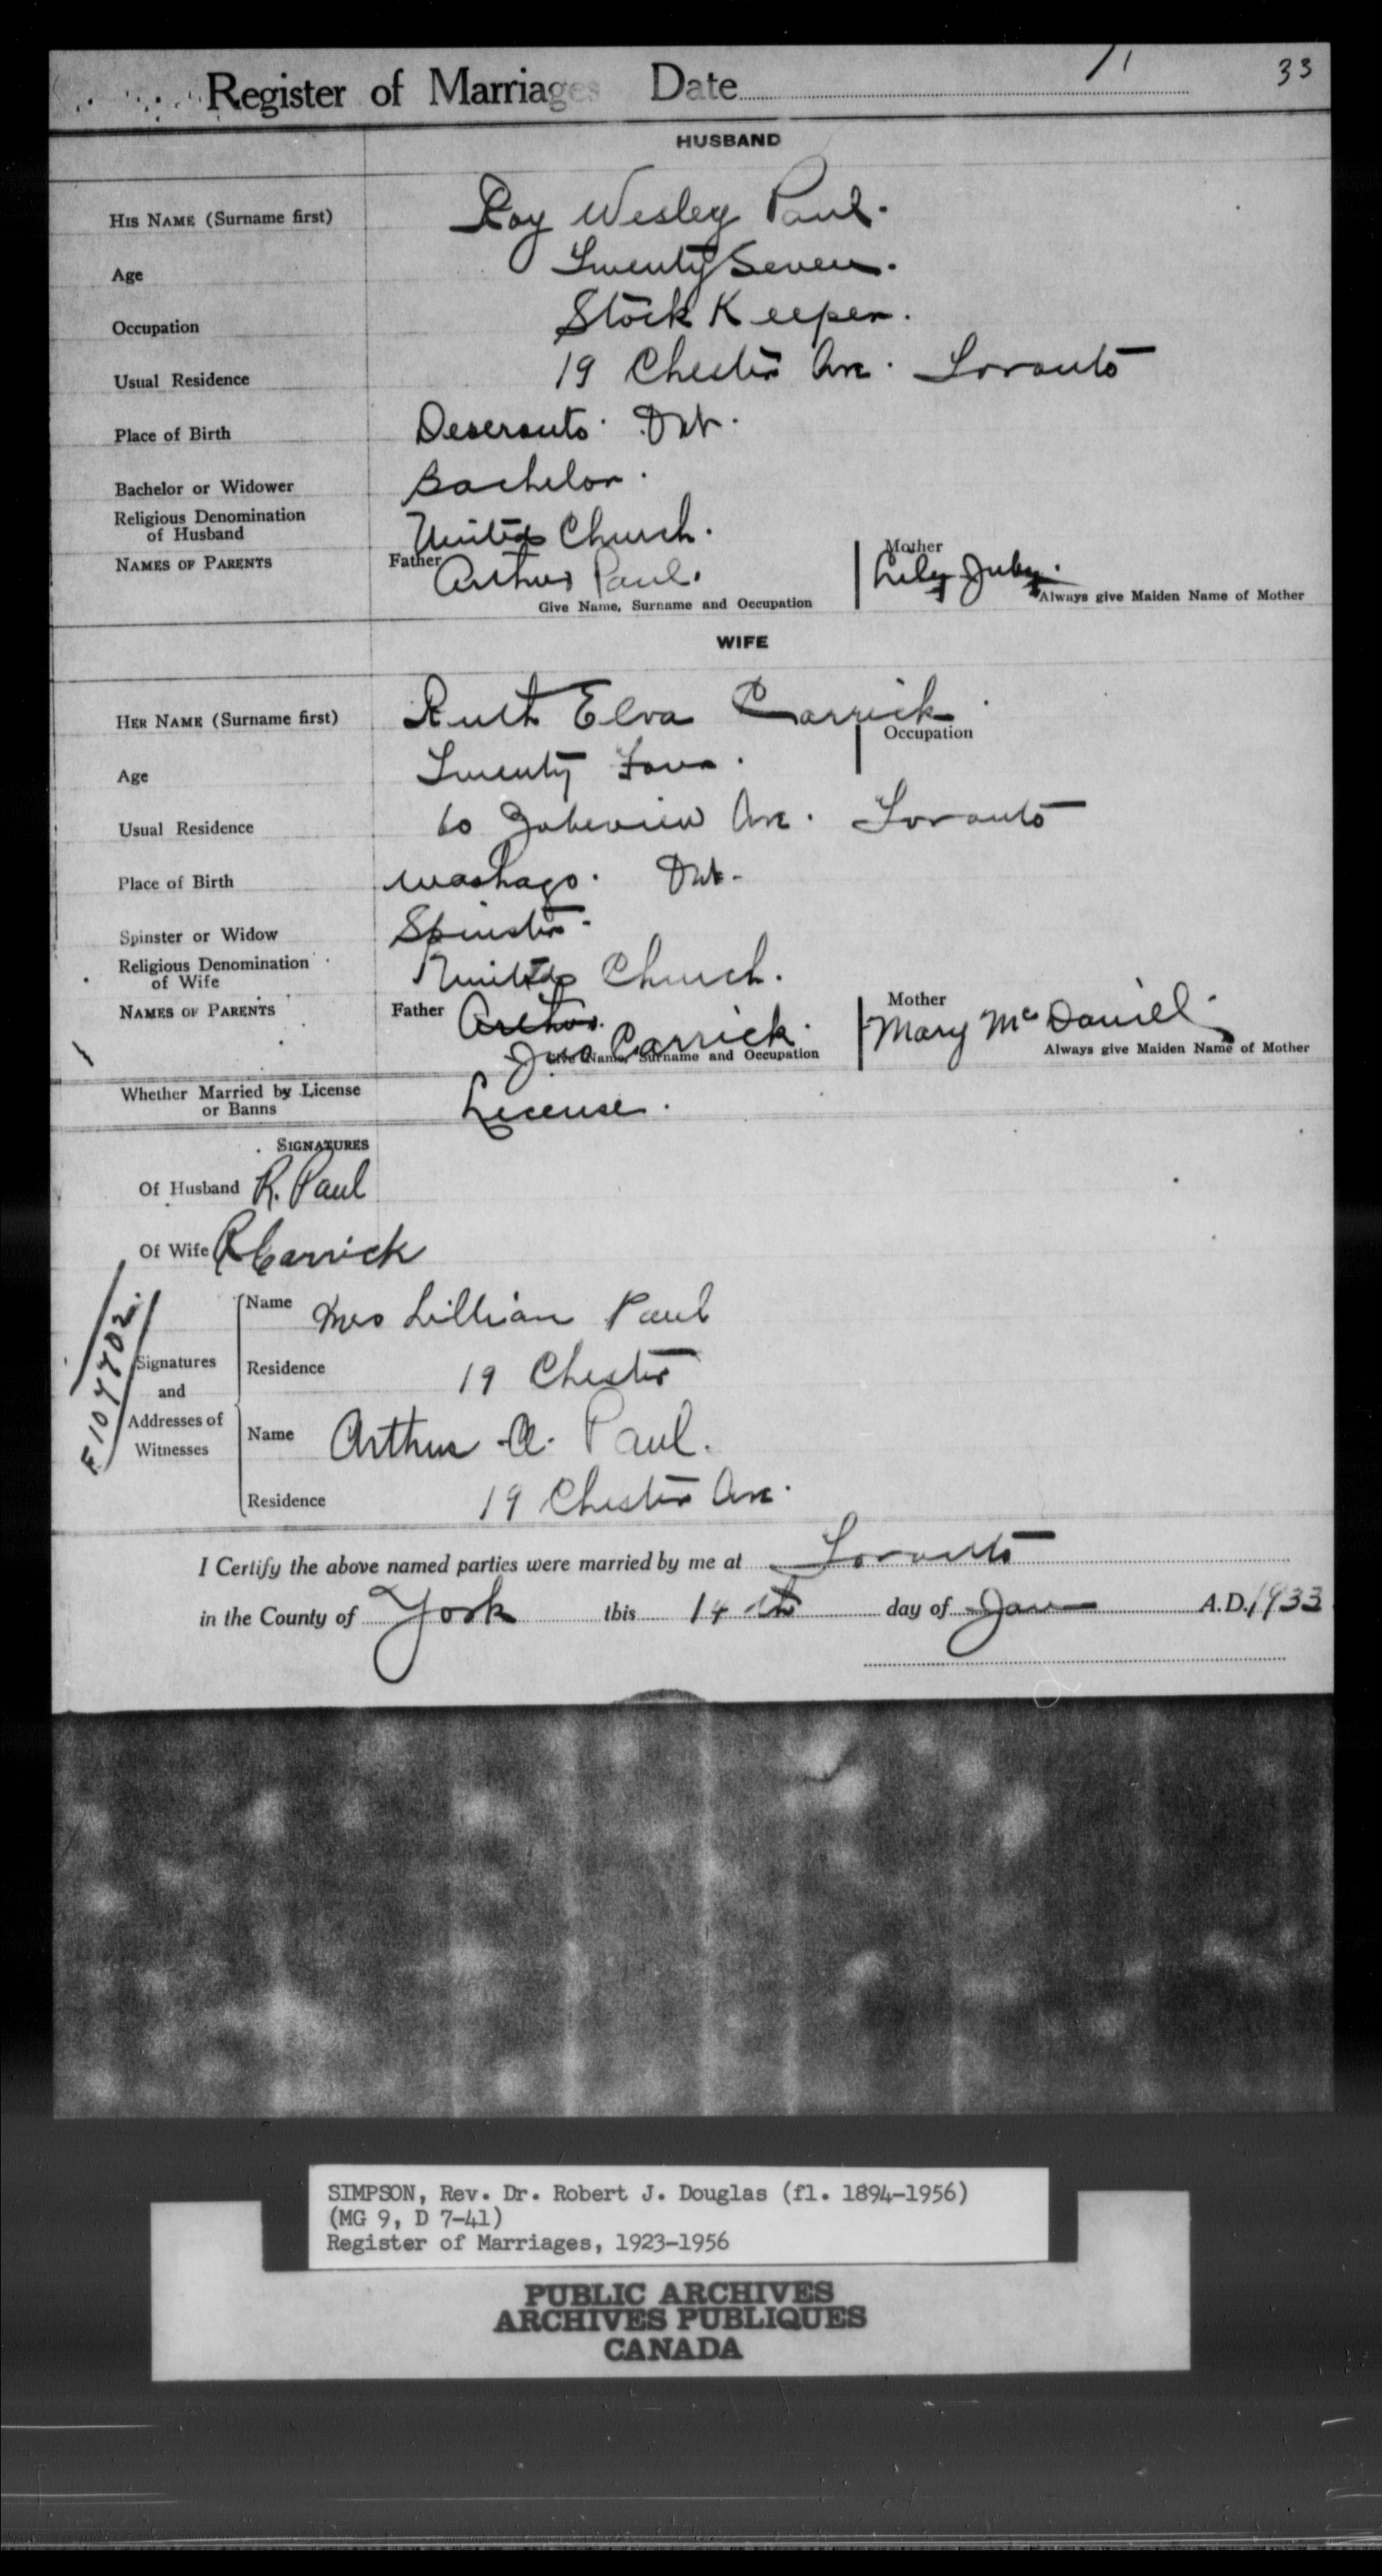 Register of Marriages Date 33
HUSBAND
HIS NAME (Surname first) Roy Wesley Paul.
Age Twenty Seven.
Occupation Stock Keeper.
Usual Residence 19 Chester Ave. Toronto
Place of Birth Deseronto. Ont.
Bachelor or Widower Bachelor.
Religious Denomination
of Husband United Church.
NAMES OF PARENTS Father Arthur Paul. Mother Lily Juby.
Give Name, Surname and Occupation Always give Maiden Name of Mother
WIFE
HER NAME (Surname first) Ruth Elva Carrick
Occupation
Age Twenty Four.
Usual Residence 60 Ave. Toronto
Place of Birth Washago. Ont.
Spinster or Widow Spinster.
Religious Denomination
of Wife United Church.
NAMES OF PARENTS Father Arthur Mother Mary McDaniel.
Jno Carrick.
Give Name, Surname and Occupation Always give Maiden Name of Mother
Whether Married by License
or Banns License.
SIGNATURES
Of Husband R. Paul
Of Wife R Carrick
Name Mrs Lillian Paul
Signatures
and
Addresses of
Witnesses
Residence 19 Chester
Name Arthur A. Paul.
Residence 19 Chester Ave.
I Certify the above named parties were married by me at Toronto
in the County of York this 14th day of Jan A.D. 1933
SIMPSON, Rev. Dr. Robert J. Douglas (fl. 1894-1956)
(MG 9, D 7-41)
Register of Marriages, 1923-1956
PUBLIC ARCHIVES
ARCHIVES PUBLIQUES
CANADA